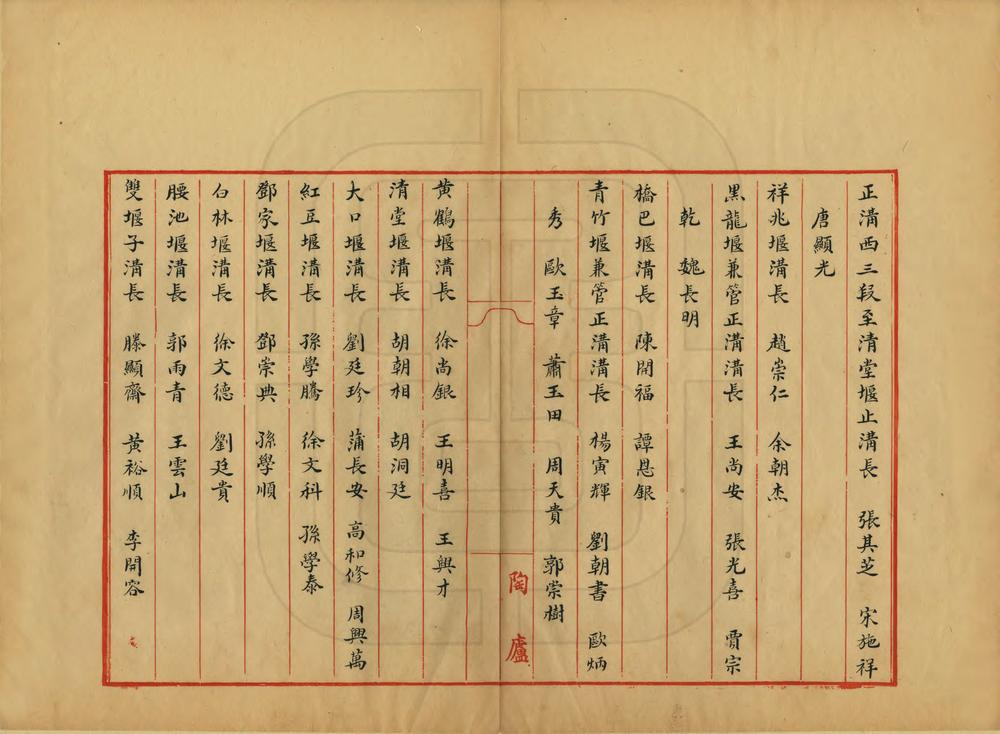 正溝西三段至清堂堰止溝長　張其芝　宋施祥
唐顯光
祥兆堰溝長　趙崇仁　余朝杰
黑龍堰兼管正溝溝長　王尚安　張光喜　賈宗
乾　魏長明
橋巴堰溝長　陳開福　譚恩銀
青竹堰兼管正溝溝長　楊寅輝　劉朝書　歐炳
秀　歐玉章　蕭玉田　周天貴　郭崇樹
陶廬
黄鶴堰溝長　徐尚銀　王明喜　王興才
清堂堰溝長　胡朝相　胡洞廷
大口堰溝長　劉廷珍　蒲長安　高和修　周興萬
紅豆堰溝長　孫學騰　徐文科　孫學泰
鄧家堰溝長　鄧崇典　孫學順
白林堰溝長　徐文德　劉廷貴
腰池堰溝長　郭雨青　王雲山
雙堰子溝長　滕顯齋　黄裕順　李開容